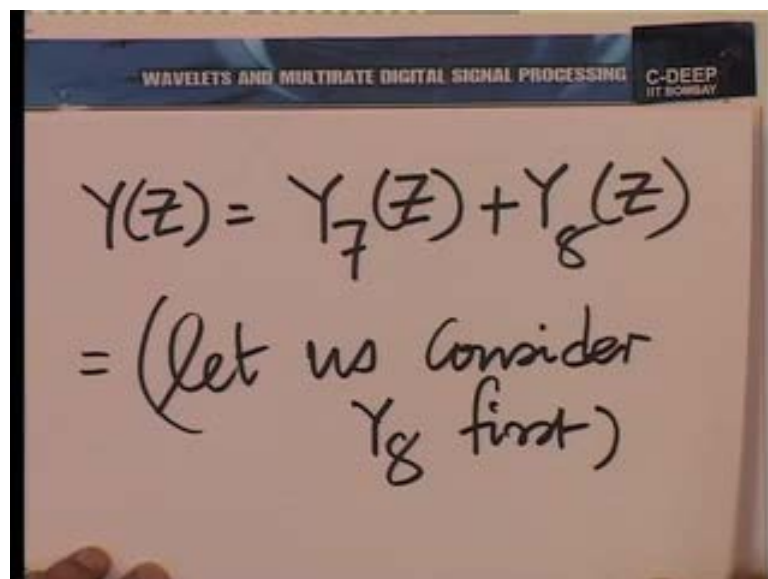 WAVELETS AND MULTIRATE DIGITAL SIGNAL PROCESSING
C-DEEP
IIT BOMBAY
Y(Z) = Y₇(Z) + Y₈(Z)
= (let us consider
Y₈ first)